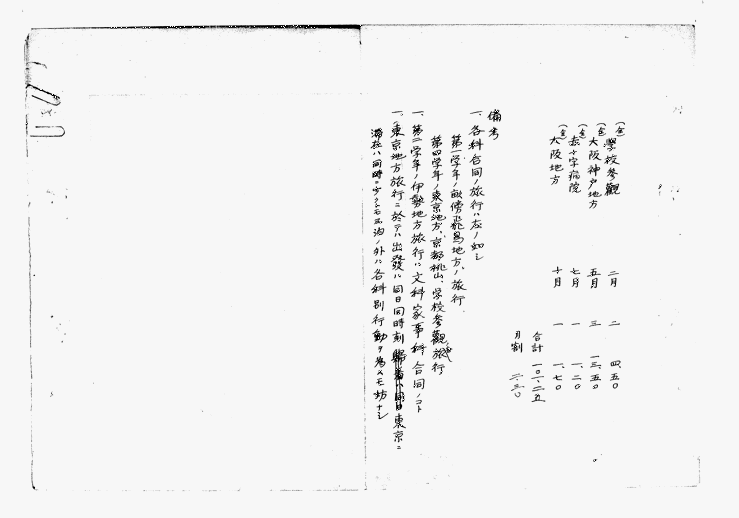 (仝)學校參觀 二月 二 四、五〇
(仝)大阪神戸地方 五月 三 一三、五〇
(仝)赤十字病院 七月 一 一、二〇
(仝)大阪地方 十月 一 一、七〇
合計 一〇一、二五
月割 二、三〇
備考
一、各科合同ノ旅行ハ左ノ如シ
第一学年ノ畝傍飛鳥地方ノ旅行
第四学年ノ東京地方、京都桃山、学校參觀旅行
一、第二学年ノ伊勢地方旅行ハ文科家事科合同ノコト
一、東京地方旅行ニ於テハ出發ハ同日同時刻 東京ニ
滞在ハ同時 宿泊ノ外ハ各科別行動ヲ為スモ妨ナシ